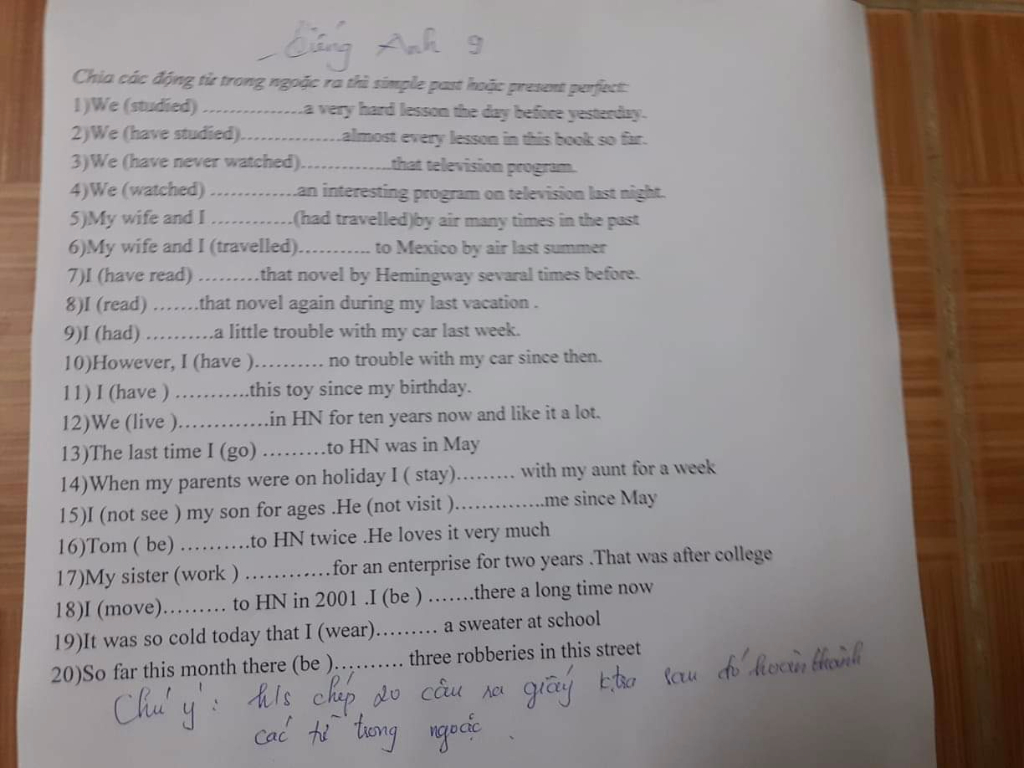 Tiếng Anh 9
Chia các động từ trong ngoặc ra thì simple past hoặc present perfect:
1)We (studied) ……………a very hard lesson the day before yesterday.
2)We (have studied)……………almost every lesson in this book so far.
3)We (have never watched)………….that television program.
4)We (watched) ………….an interesting program on television last night.
5)My wife and I …………(had travelled)by air many times in the past
6)My wife and I (travelled)……….. to Mexico by air last summer
7)I (have read) ………that novel by Hemingway sevaral times before.
8)I (read) …….that novel again during my last vacation .
9)I (had) ……….a little trouble with my car last week.
10)However, I (have )………. no trouble with my car since then.
11) I (have ) ………..this toy since my birthday.
12)We (live )………….in HN for ten years now and like it a lot.
13)The last time I (go) ………to HN was in May
14)When my parents were on holiday I ( stay)……… with my aunt for a week
15)I (not see ) my son for ages .He (not visit )…………..me since May
16)Tom ( be) ……….to HN twice .He loves it very much
17)My sister (work ) …………for an enterprise for two years .That was after college
18)I (move)……… to HN in 2001 .I (be ) …….there a long time now
19)It was so cold today that I (wear)……… a sweater at school
20)So far this month there (be )………. three robberies in this street
Chú ý: h/s chép 20 câu ra giấy k.tra sau đó hoàn thành
các từ trong ngoặc .